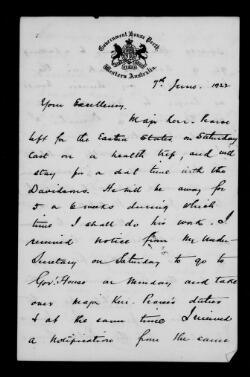 Government House Perth,
Western Australia.
7th June. 1922
Your Excellency.
Major Ker-Pearse
left for the Eastern States on Saturday
last on a health trip, and will
stay for a short time with the
Davidsons. He will be away for
5 or 6 weeks during which
time I shall do his work. I
received notice from the Under
Secretary on Saturday to go to
Gov. House on Monday and take
over Major Ker-Pearse's duties
& at the same time I received
a notification from the same